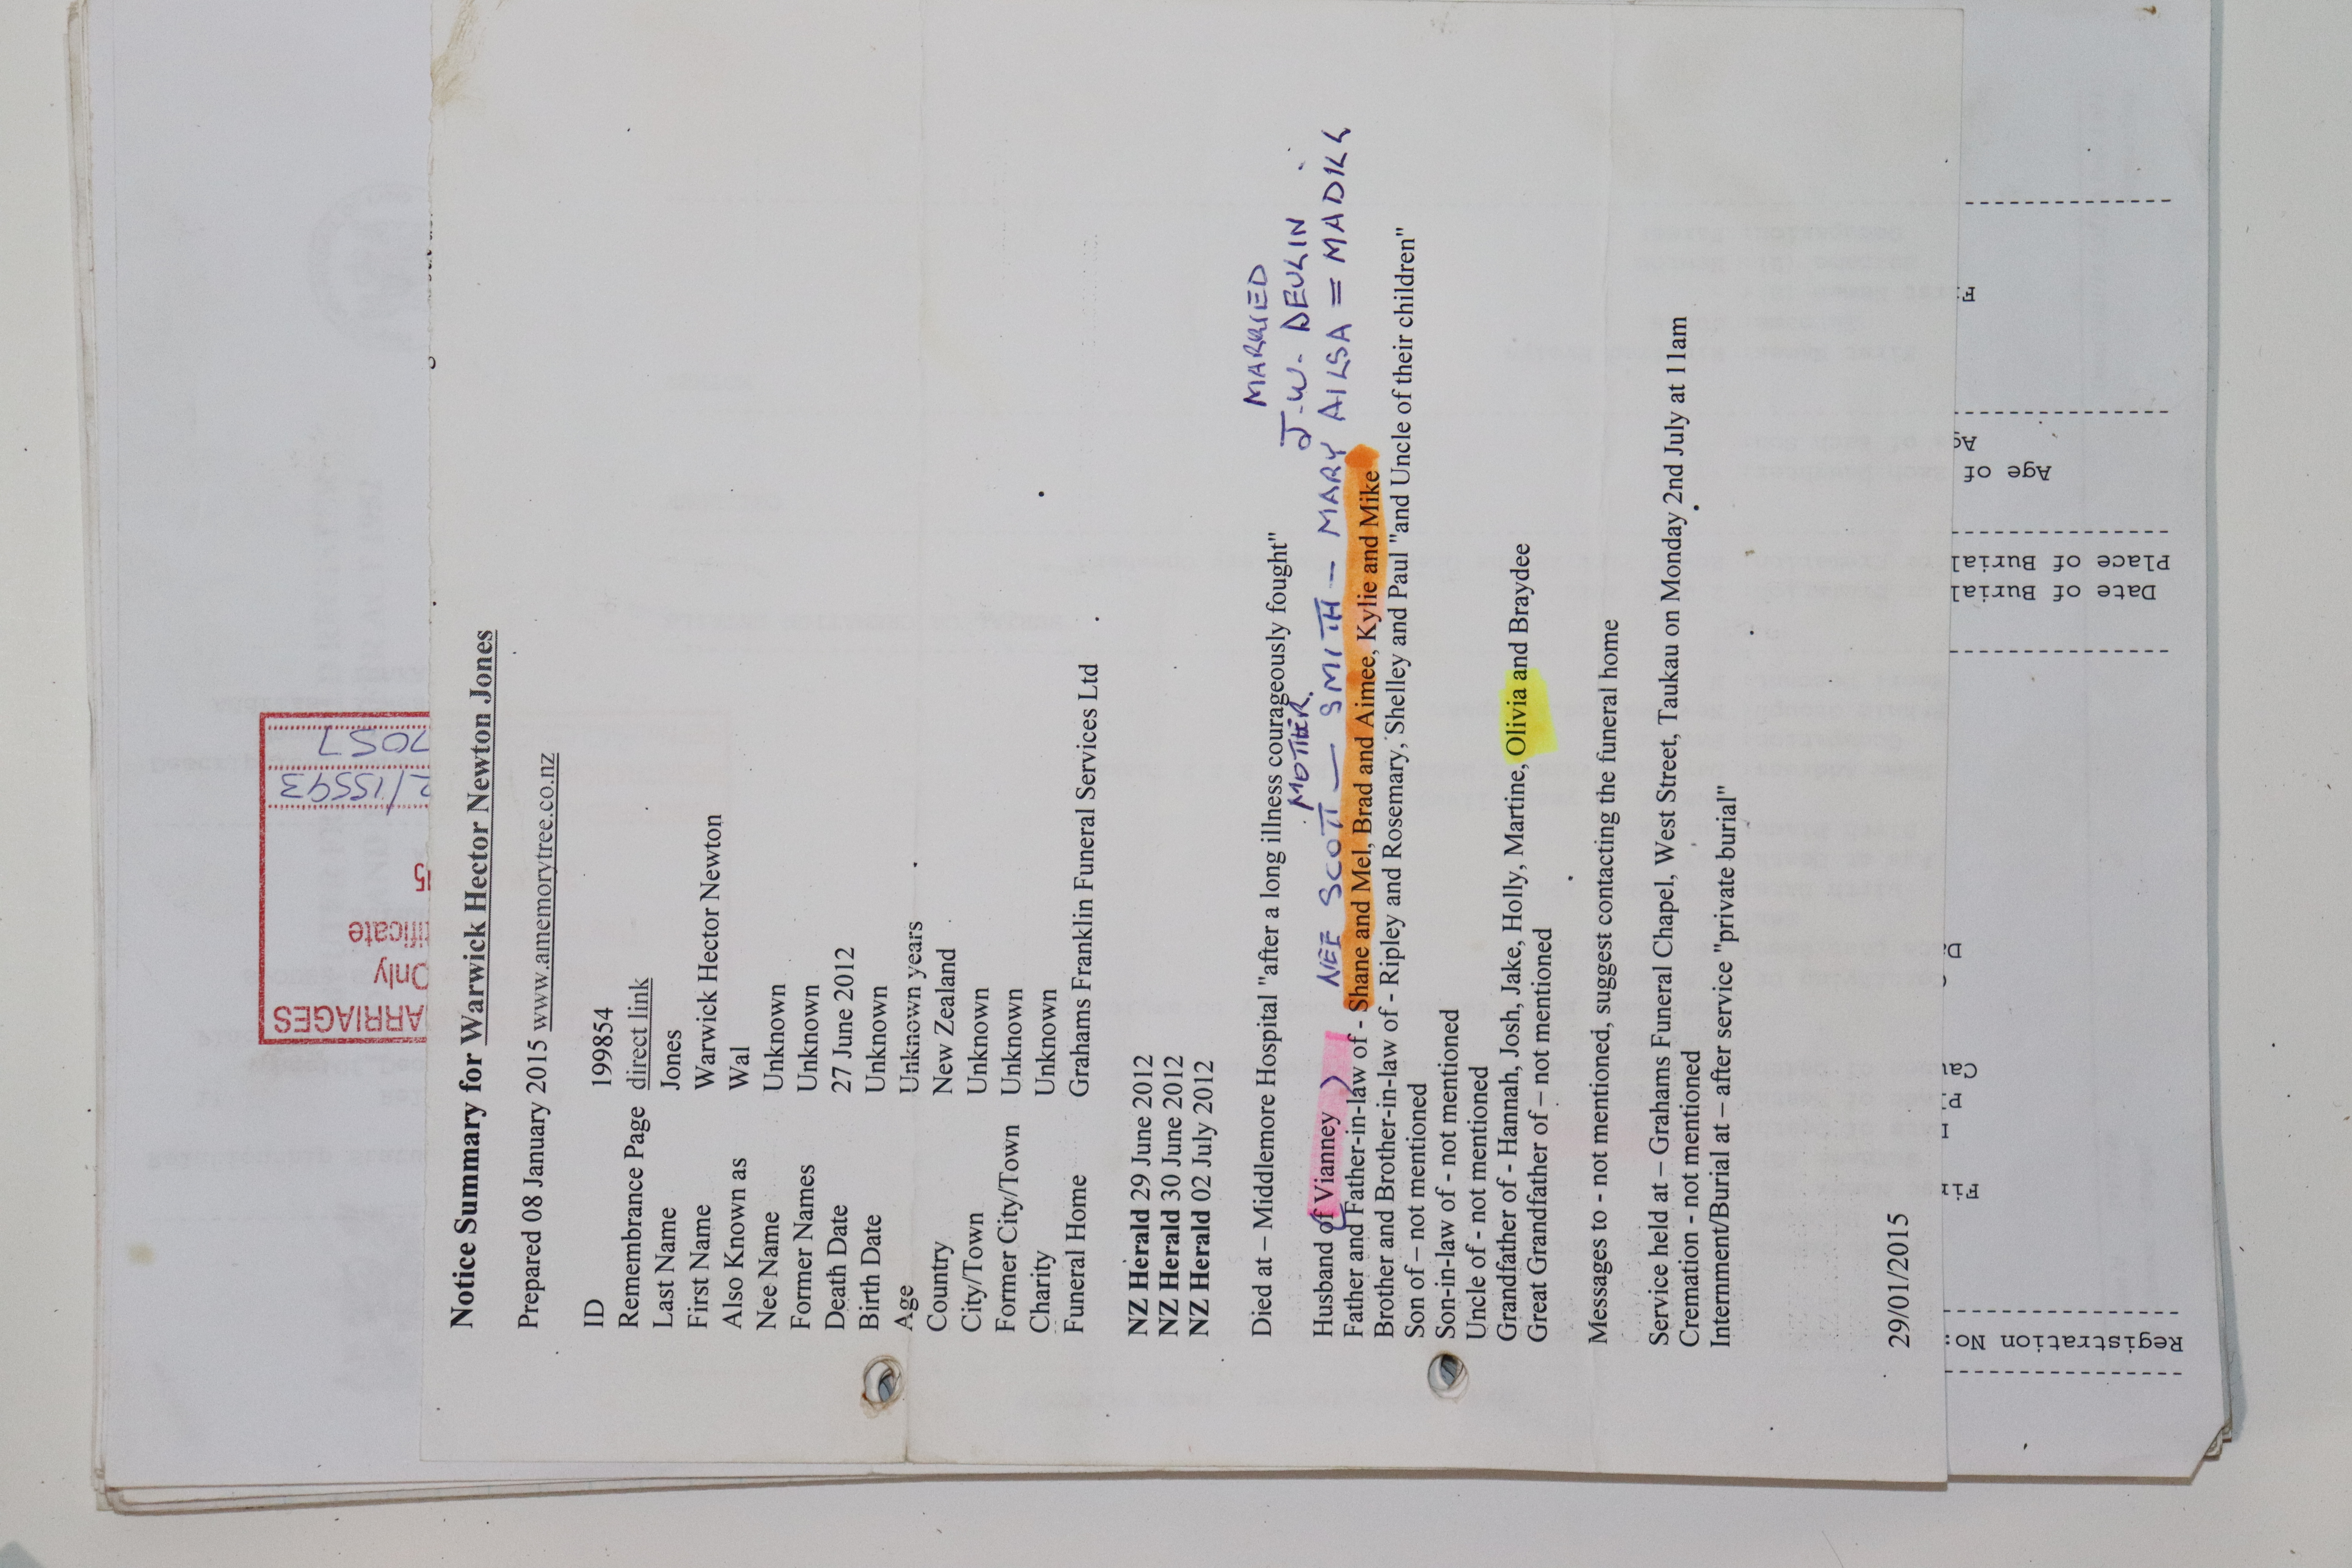 Notice Summary for Warwick Hector Newton Jones
Prepared 08 January 2015 www.amemorytree.co.nz
ID 199854
Remembrance Page direct link
Last Name Jones
First Name Warwick Hector Newton
Also Known as Wal
Nee Name Unknown
Former Names Unknown
Death Date 27 June 2012
Birth Date Unknown
Age Unknown years
Country New Zealand
City/Town Unknown
Former City/Town Unknown
Charity Unknown
Funeral Home Grahams Franklin Funeral Services Ltd
NZ Herald 29 June 2012
NZ Herald 30 June 2012
NZ Herald 02 July 2012
MARRIED
Died at – Middlemore Hospital "after a long illness courageously fought"
J.W. DEVLIN
MOTHER.
Husband of (Vianney) NEE SCOTT — SMITH — MARY AILSA = MADILL
Father and Father-in-law of - Shane and Mel, Brad and Aimee, Kylie and Mike
Brother and Brother-in-law of - Ripley and Rosemary, Shelley and Paul "and Uncle of their children"
Son of – not mentioned
Son-in-law of - not mentioned
Uncle of - not mentioned
Grandfather of - Hannah, Josh, Jake, Holly, Martine, Olivia and Braydee
Great Grandfather of – not mentioned
Messages to - not mentioned, suggest contacting the funeral home
Service held at – Grahams Funeral Chapel, West Street, Taukau on Monday 2nd July at 11am
Cremation - not mentioned
Internment/Burial at – after service "private burial"
29/01/2015
ARRIAGES
Only
ificate
15
2/15593
7057
Registration No:
Date of Burial
Place of Burial
Age of